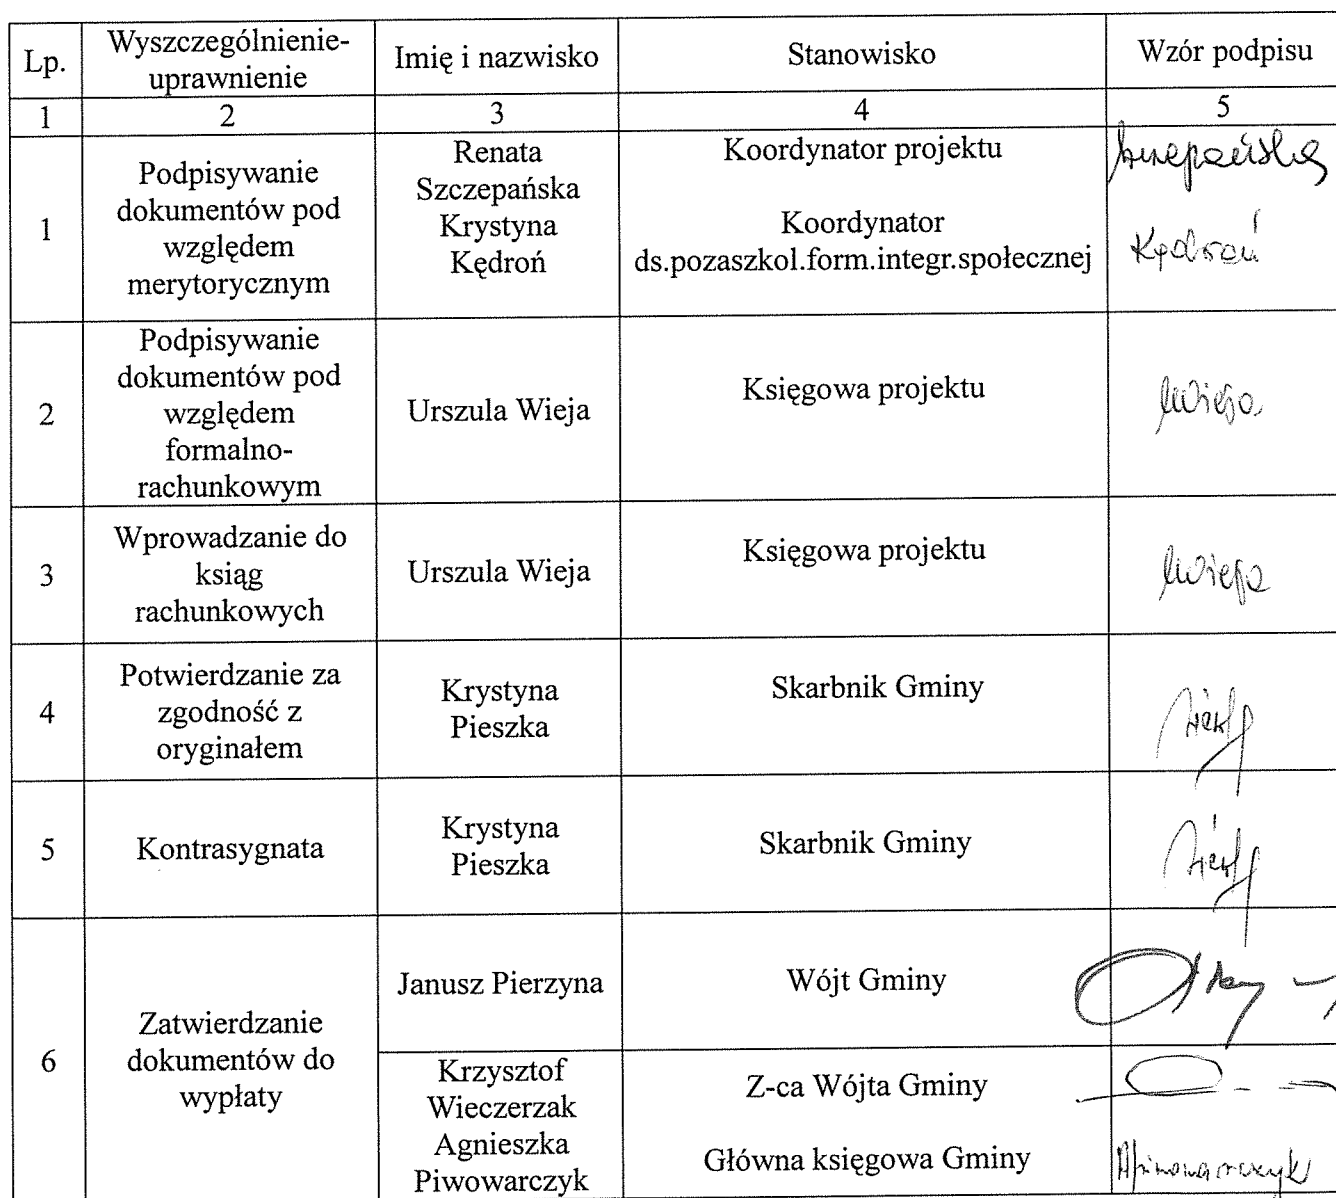 Lp.
Wyszczególnienie-
uprawnienie
Imię i nazwisko
Stanowisko
Wzór podpisu
1
2
3
4
5
1
Podpisywanie
dokumentów pod
względem
merytorycznym
Renata
Szczepańska
Krystyna
Kędroń
Koordynator projektu
Koordynator
ds.pozaszkol.form.integr.społecznej
Szczepańska
Kędroń
2
Podpisywanie
dokumentów pod
względem
formalno-
rachunkowym
Urszula Wieja
Księgowa projektu
UWieja
3
Wprowadzanie do
ksiąg
rachunkowych
Urszula Wieja
Księgowa projektu
UWieja
4
Potwierdzanie za
zgodność z
oryginałem
Krystyna
Pieszka
Skarbnik Gminy
5
Kontrasygnata
Krystyna
Pieszka
Skarbnik Gminy
6
Zatwierdzanie
dokumentów do
wypłaty
Janusz Pierzyna
Wójt Gminy
Krzysztof
Wieczerzak
Agnieszka
Piwowarczyk
Z-ca Wójta Gminy
Główna księgowa Gminy
APiwowarczyk